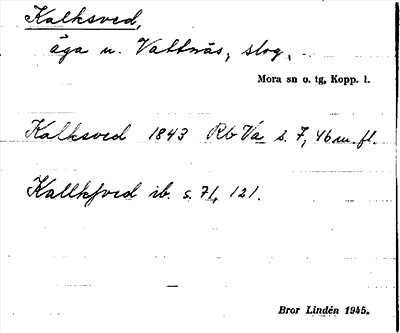 Kalksved,
äga u. Vattnäs, skog.
Mora sn o. tg, Kopp. l.
Kalksved 1843 Rb Va s. 7, 46 m. fl.
Kallkfved ib. s. 71, 121.
Bror Lindén 1945.